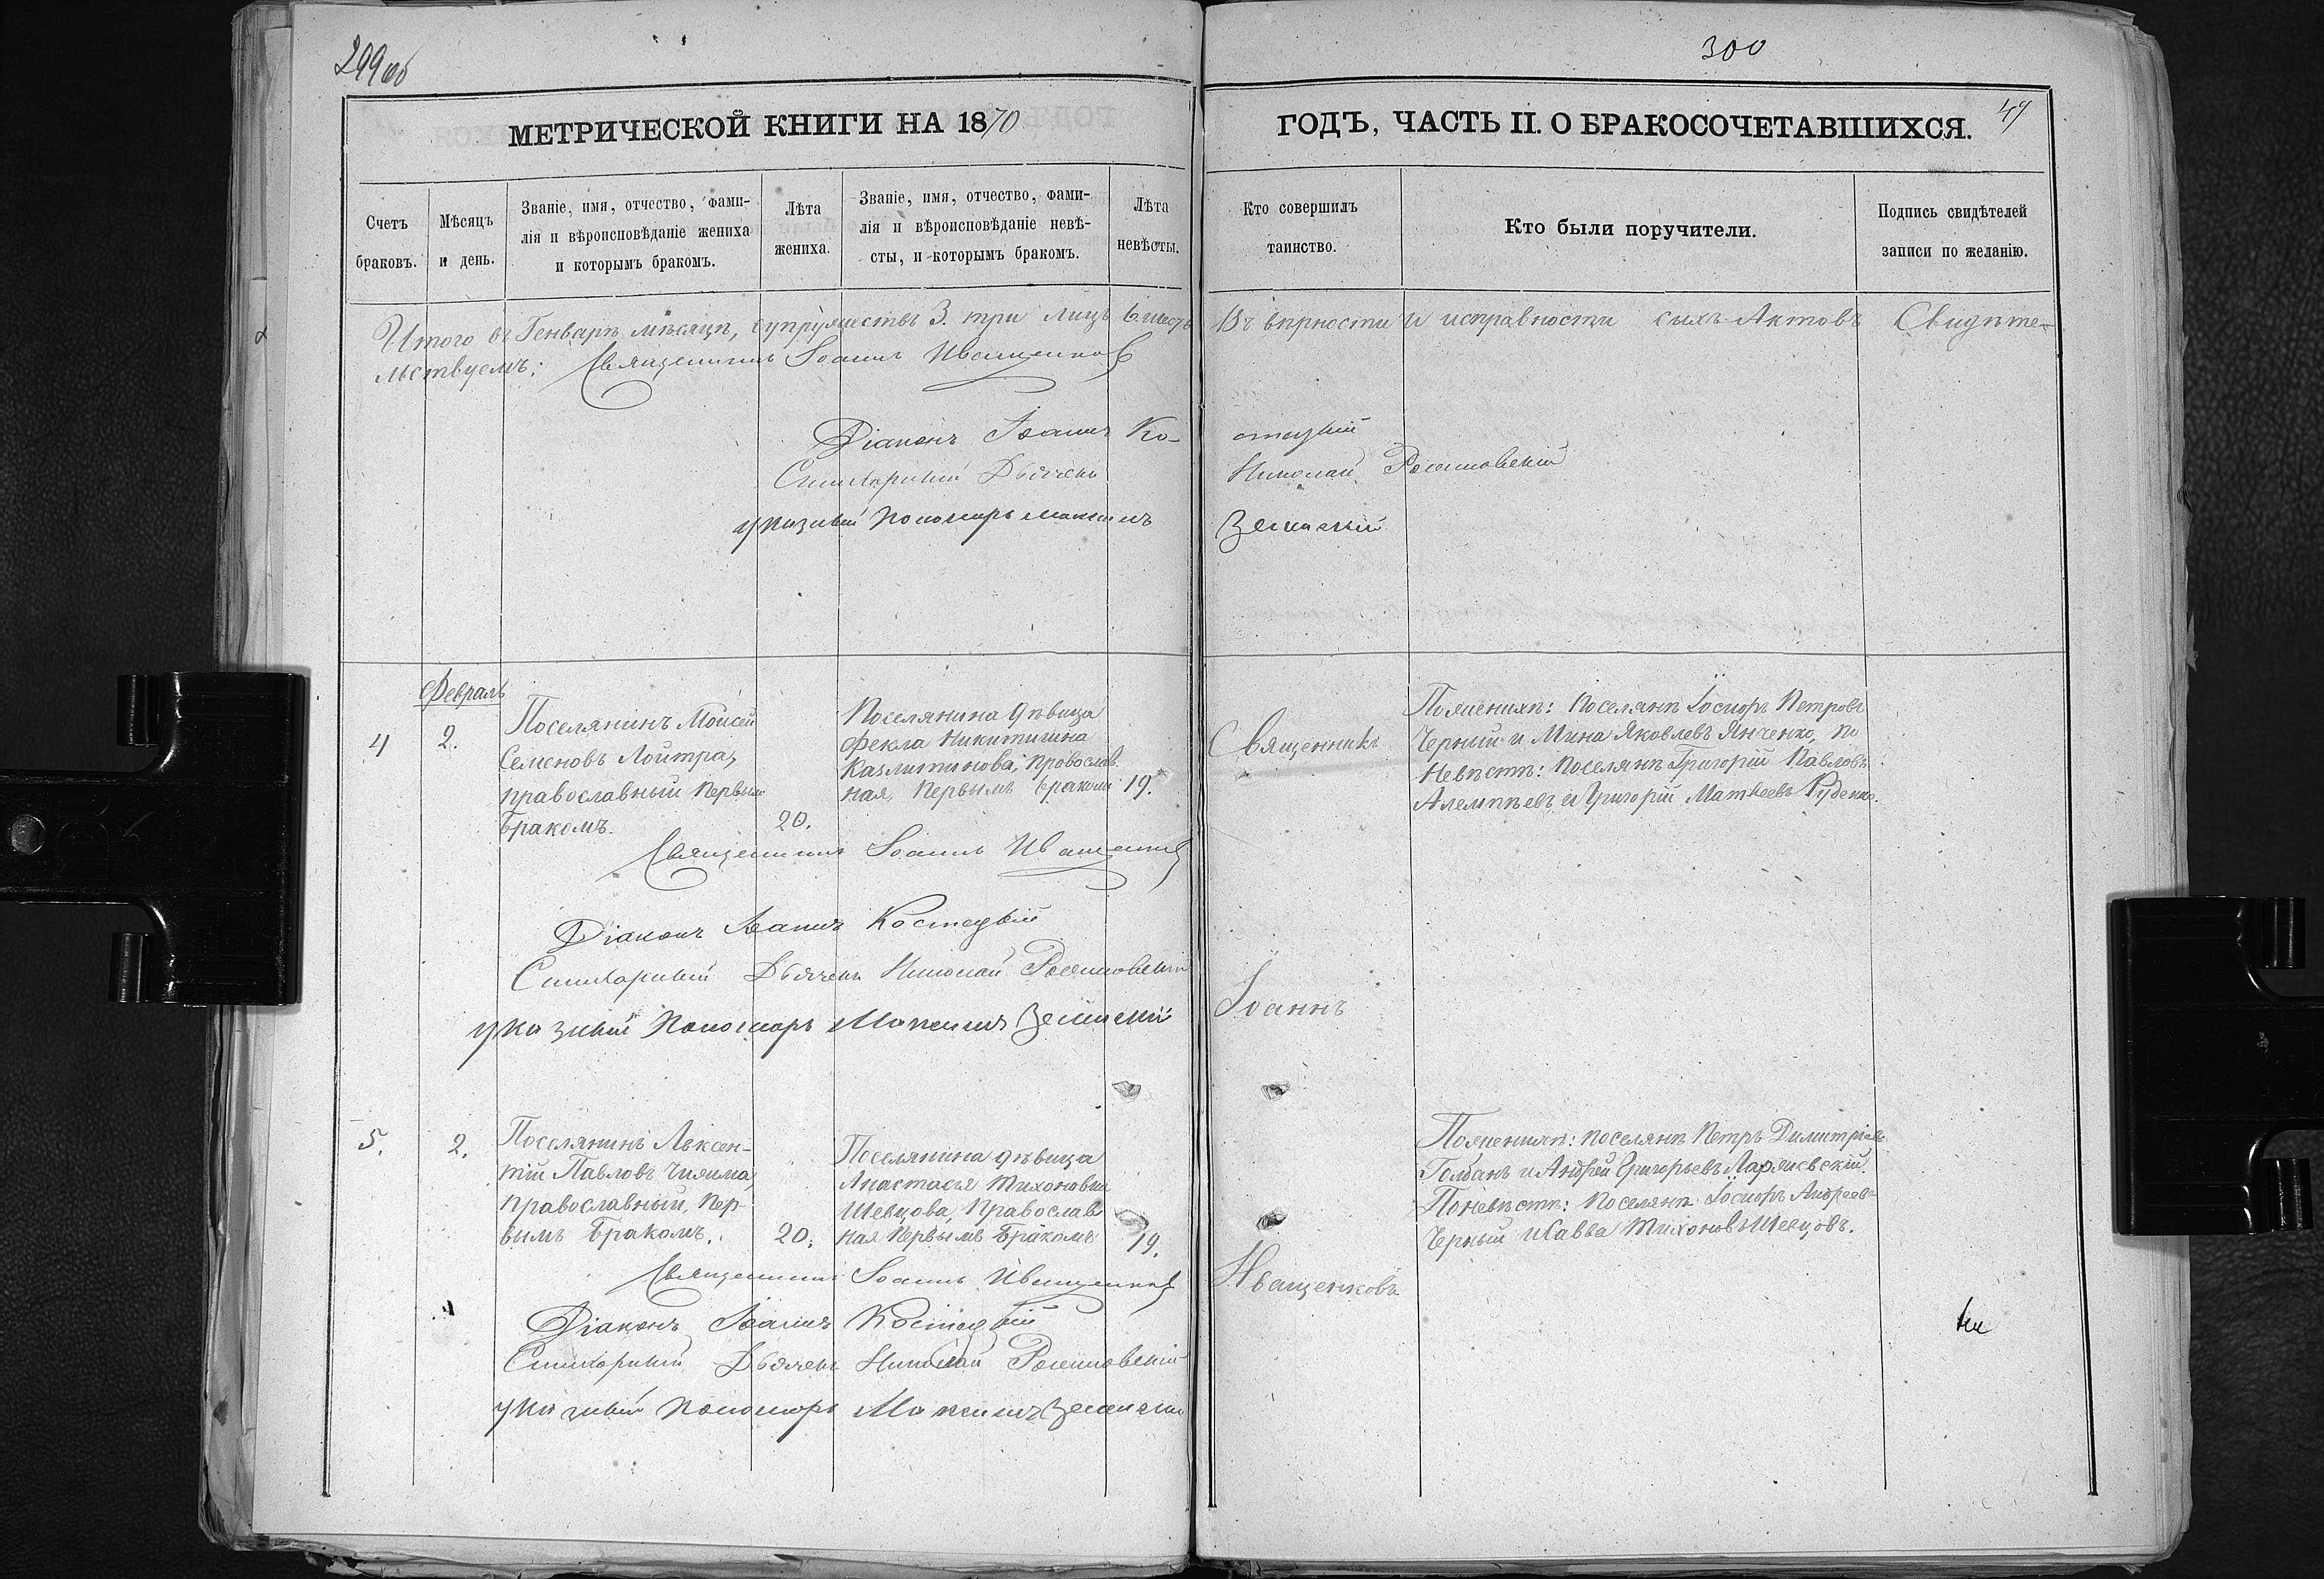 299об
300
МЕТРИЧЕСКОЙ КНИГИ НА 1870
ГОДЪ, ЧАСТЬ II. О БРАКОСОЧЕТАВШИХСЯ.
49
Счетъ
браковъ.
Мѣсяцъ
и день.
Званіе, имя, отчество, фами-
лія и вѣроисповѣданіе жениха
и которымъ бракомъ.
Лѣта
жениха.
Званіе, имя, отчество, фами-
лія и вѣроисповѣданіе невѣ-
сты, и которымъ бракомъ.
Лѣта
невѣсты.
Кто совершилъ
таинство.
Кто были поручители.
Подпись свидѣтелей
записи по желанію.
Итого въ Генварѣ мѣсяцѣ, супружествъ 3. три лицъ 6. шесть Въ вѣрности и исправности сихъ Актовъ Свидѣте-
льствуемъ: Священникъ Іоаннъ Иващенков
Діаконъ Іоаннъ Ко- стецкій
Стихарный Дьячекъ Николай
указный Пономарь Максимъ
Февраль
4
2.
Поселянинъ Моисей
Семеновъ Лойтра,
православный Первым
бракомъ.
20.
Поселянина дѣвица
Фекла Никитична
Казлитинова, православ
ная, Первымъ бракомъ
19.
Священникъ
Поженихѣ: Поселяне Іосифъ Петровъ
Черный и Мина Яковлевъ Янченко, По
Невѣстѣ: Поселяне Григорій Павловъ
и Григорій Матвеевъ Руденко.
Священникъ Іоаннъ Иващенков
Діаконъ Іоаннъ Костецкій
Стихарный Дьячекъ Николай
указный Пономарь Максимъ
Іоаннъ
5.
2.
Поселянинъ Авксен-
тій Павловъ Чижма,
Православный, Пер-
вымъ бракомъ.
20.
Поселянина дѣвица
Анастасья Тихоновна
Шевцова, Православ
ная Первымъ бракомъ
19.
Поженихѣ: поселяне Петръ Димитріевъ
и Андрей Григорьевъ
Поневѣстѣ: Поселяне Іосифъ Андреевъ
Черный и Савва Тихоновъ Шевцовъ.
Иващенковъ
Священникъ Іоаннъ Иващенков
Діаконъ Іоаннъ Костецкій
Стихарный Дьячекъ Николай
указный Пономарь Максимъ